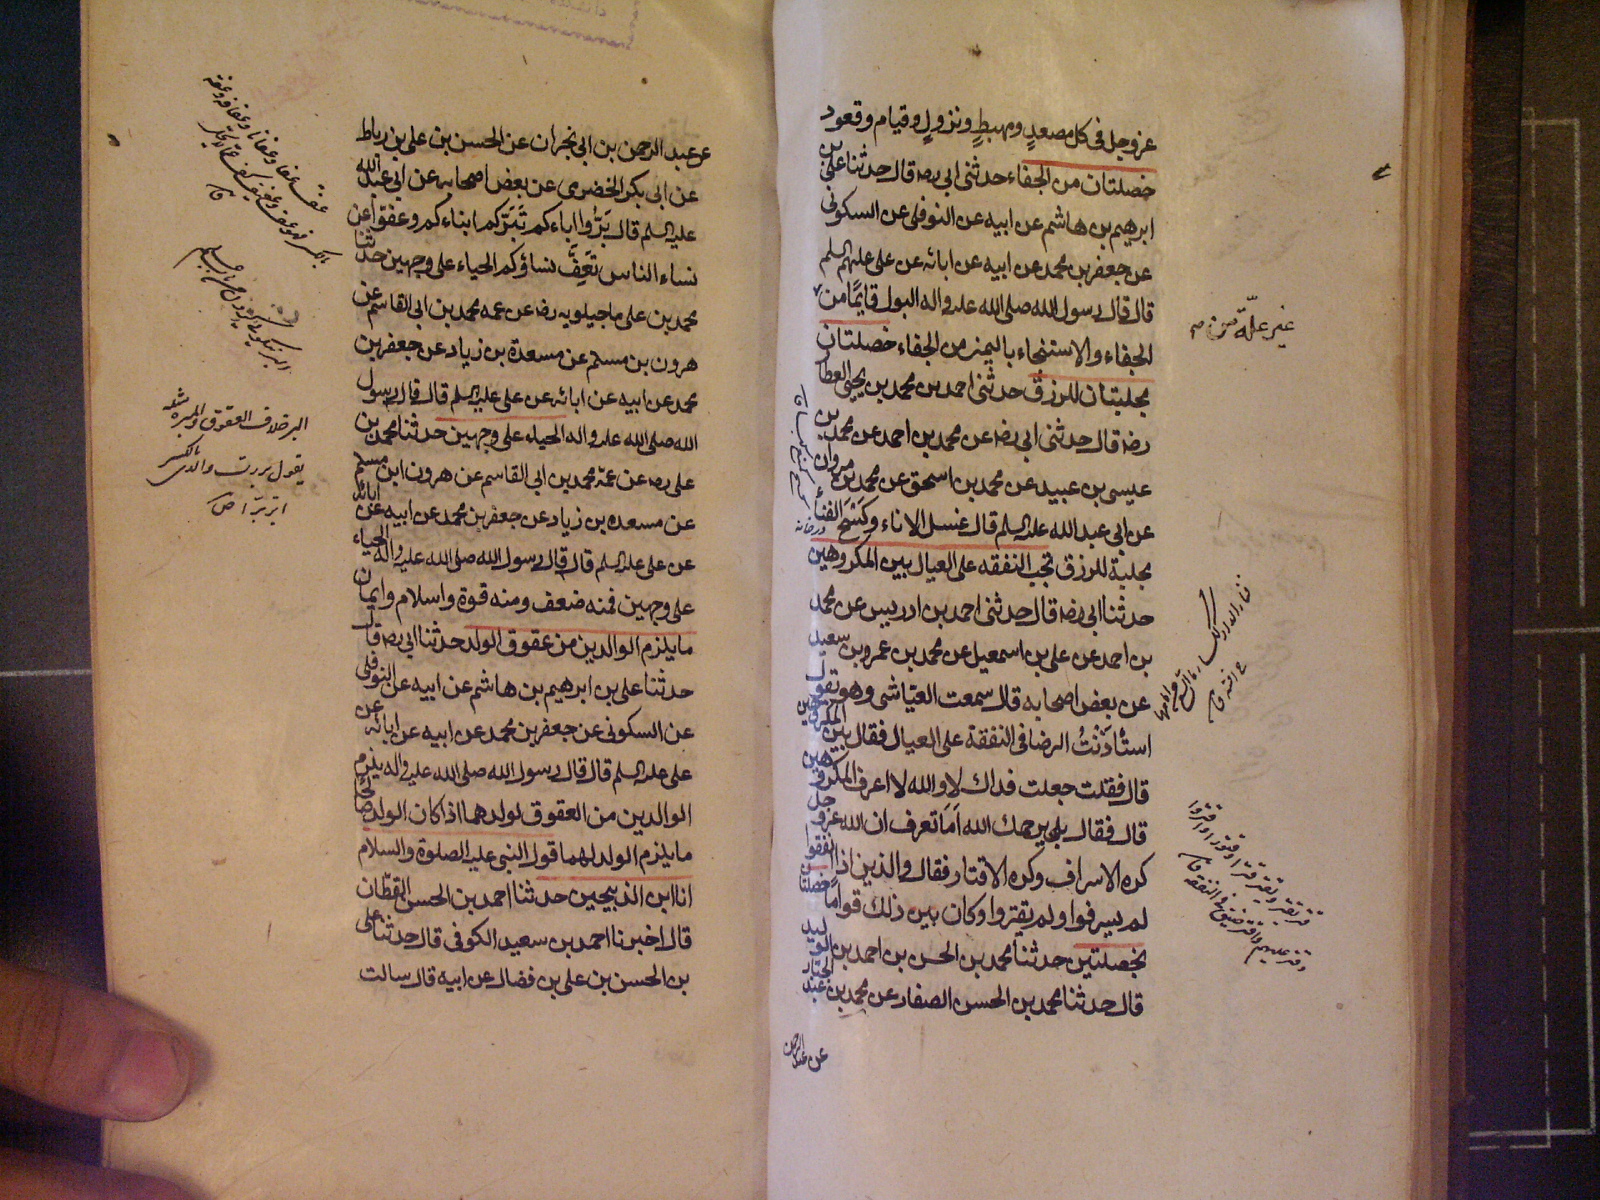 عز وجل فى كل مصعد ومهبط ونزول وقيام وقعود
خصلتان من الجفاء حدثنى ابى رضه قال حدثنا على بن
ابرهيم بن هاشم عن ابيه عن النوفلى عن السكونى
عن جعفر بن محمد عن ابيه عن ابائه عن على عليهم السلم
قال قال رسول الله صلى الله عليه واله البول قايمًا من
الجفاء والاستنجاء باليمنى من الجفاء خصلتان
مجلبتان للرزق حدثنى احمد بن محمد بن يحيى العطار
رضه قال حدثنى ابى رضه عن محمد بن احمد عن محمد بن
عيسى بن عبيد عن محمد بن اسحق عن محمد بن مروان
عن ابى عبد الله عليه السلم قال غسل الاناء وكَسْحَ الفناء
مجلبة للرزق تجب النفقه على العيال بين المكروهين
حدثنا ابى رضه قال حدثنى احمد بن ادريس عن محمد
بن احمد عن على بن اسمعيل عن محمد بن عمرو بن سعيد
عن بعض اصحابه قال سمعت العيّاشى وهو يقول
استأذَنْتُ الرضا فى النفقة على العيال فقال بين المكروهين
قال فقلت جعلت فداك لا والله لا اعرف المكروهين
قال فقال بلى يرحمك الله اَمَا تعرف ان الله عز و جل
كره الاسراف وكره الاقتار فقال والذين اذا انفقوا
لم يسرفوا ولم يقتروا وكان بين ذلك قوامًا خصلتان
بخصلتين حدثنا محمد بن الحسن بن احمد بن الوليد
قال حدثنا محمد بن الحسن الصفار عن محمد بن عبد الجبار
عن عبد الرحمن
غير علّة من
عن عبد الرحمن بن ابى نجران عن الحسن بن على بن رباط
عن ابى بكر الخضرمى عن بعض اصحابه عن ابى عبد الله
عليه السلم قال بَرّوا اباءكم تَبَرّكم ابناءكم وعفوا عن
نساء الناس تعَفَّ نساؤكم الحياء على وجهين حدثنا
محمد بن على ماجيلويه رضه عن عمه محمد بن ابى القاسم عن
هرون بن مسلم عن مسعدة بن زياد عن جعفر بن
محمد عن ابيه عن ابائه عن على عليه السلم قال قال رسول
الله صلى الله عليه واله الحياء على وجهين حدثنا محمد بن
على رضه عن عمّه محمد بن ابى القاسم عن هرون ابن مسلم
عن مسعده بن زياد عن جعفر بن محمد عن ابيه عن ابائه
عن على عليه السلم قال قال رسول الله صلى الله عليه واله الحياء
على وجهين فمنه ضعف ومنه قوة واسلام وايمان
ما يلزم الوالدين من عقوق الولد حدثنا ابى رضه قال
حدثنا على بن ابرهيم بن هاشم عن ابيه عن النوفلى
عن السكونى عن جعفر بن محمد عن ابيه عن ابائه عن
على عليه السلم قال قال رسول الله صلى الله عليه واله يلزم
الوالدين من العقوق لولدهما اذا كان الولد صالحا
ما يلزم الولد لهما قول النبى عليه الصلوة والسلام
انا ابن الذبيحين حدثنا احمد بن الحسن القطان
قال اخبرنا احمد بن سعيد الكوفى قال حدثنا على
بن الحسن بن على بن فضال عن ابيه قال سالت
البر خلاف العقوق والمبرة مثله
يقول بررت والدى بالكسر
ابره برّا ص